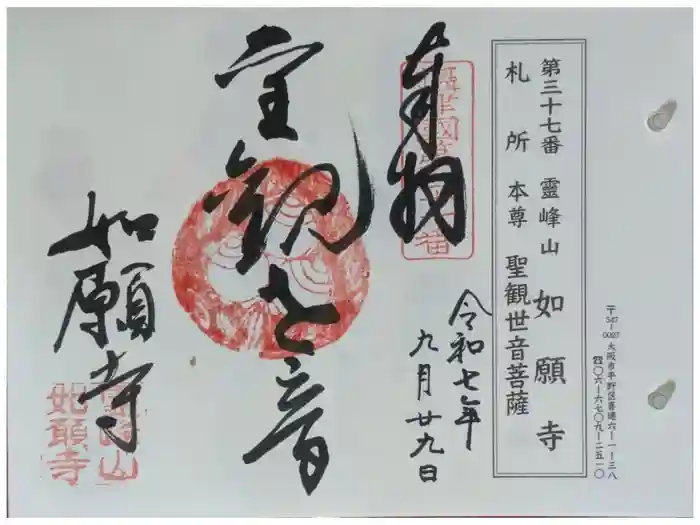 第三十七番 霊峰山 如願寺
札所 本尊 聖観世音菩薩
〒547-0027 大阪市平野区喜連六-一-三八
☎〇六-六七〇九-二五一〇
奉拝
令和七年
九月廿九日
聖観世音
如願寺
霊峰山
如願寺